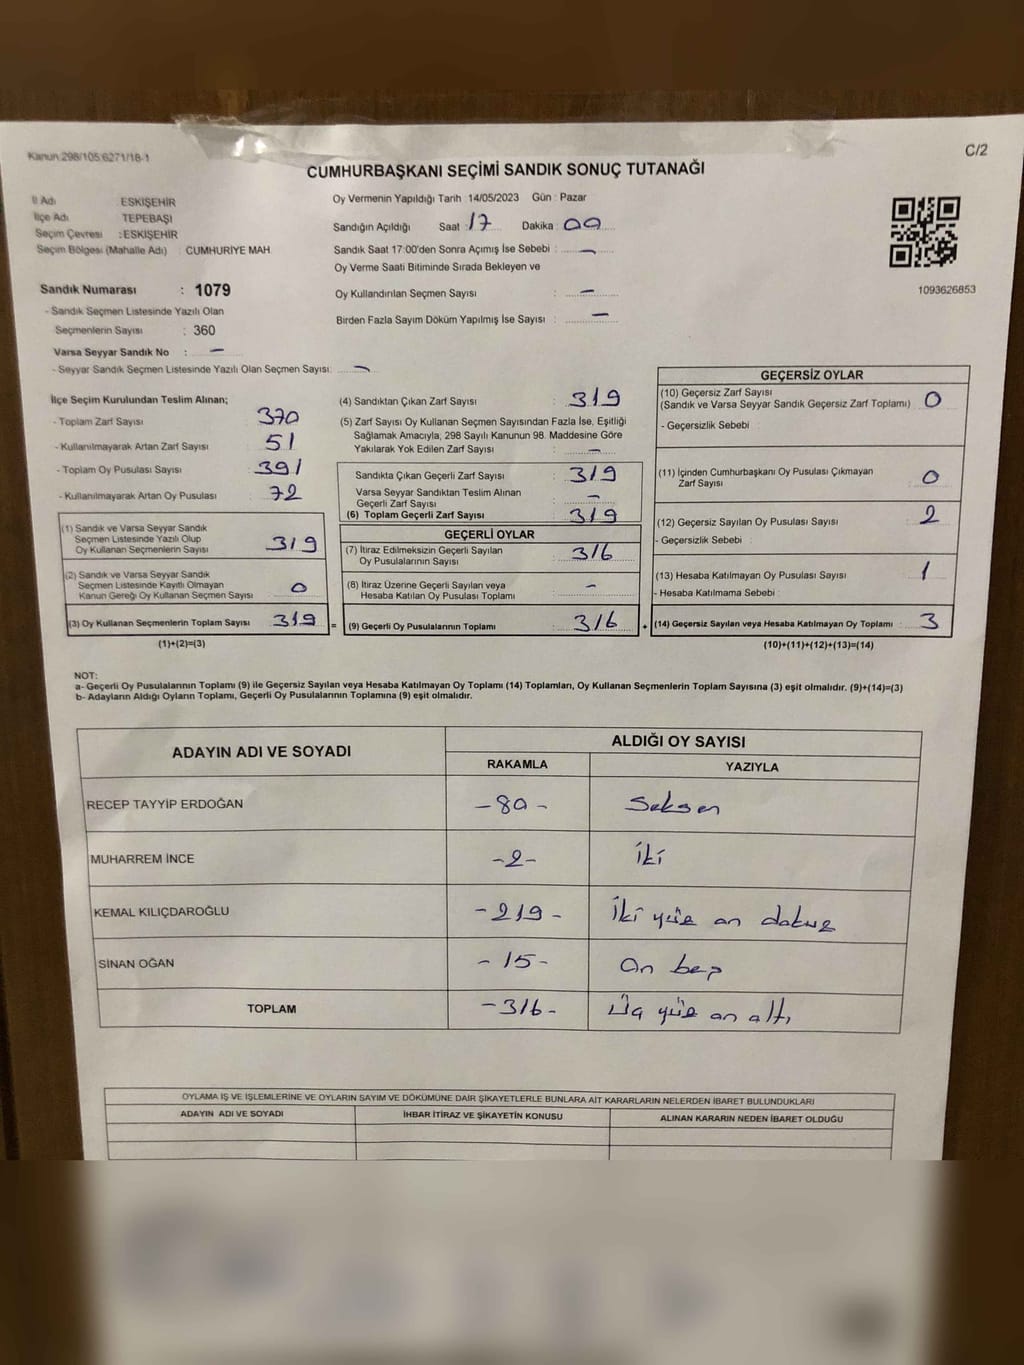 Kanun:298/105:6271/18-1
C/2
CUMHURBAŞKANI SEÇİMİ SANDIK SONUÇ TUTANAĞI
İl Adı ESKİŞEHİR
İlçe Adı TEPEBAŞI
Seçim Çevresi : ESKİŞEHİR
Seçim Bölgesi (Mahalle Adı) : CUMHURİYE MAH.
Oy Vermenin Yapıldığı Tarih 14/05/2023 Gün : Pazar
Sandığın Açıldığı Saat : 17 Dakika : 00
Sandık Saat 17:00'den Sonra Açımış İse Sebebi : -
Oy Verme Saati Bitiminde Sırada Bekleyen ve
Oy Kullandırılan Seçmen Sayısı : -
Birden Fazla Sayım Döküm Yapılmış İse Sayısı : -
1093626853
Sandık Numarası : 1079
- Sandık Seçmen Listesinde Yazılı Olan
Seçmenlerin Sayısı : 360
Varsa Seyyar Sandık No : -
- Seyyar Sandık Seçmen Listesinde Yazılı Olan Seçmen Sayısı: -
İlçe Seçim Kurulundan Teslim Alınan;
- Toplam Zarf Sayısı : 370
- Kullanılmayarak Artan Zarf Sayısı : 51
- Toplam Oy Pusulası Sayısı : 391
- Kullanılmayarak Artan Oy Pusulası : 72
(1) Sandık ve Varsa Seyyar Sandık
Seçmen Listesinde Yazılı Olup
Oy Kullanan Seçmenlerin Sayısı : 319
(2) Sandık ve Varsa Seyyar Sandık
Seçmen Listesinde Kayıtlı Olmayan
Kanun Gereği Oy Kullanan Seçmen Sayısı : 0
(3) Oy Kullanan Seçmenlerin Toplam Sayısı : 319 =
(1)+(2)=(3)
(4) Sandıktan Çıkan Zarf Sayısı : 319
(5) Zarf Sayısı Oy Kullanan Seçmen Sayısından Fazla İse, Eşitliği
Sağlamak Amacıyla, 298 Sayılı Kanunun 98. Maddesine Göre
Yakılarak Yok Edilen Zarf Sayısı : -
Sandıkta Çıkan Geçerli Zarf Sayısı : 319
Varsa Seyyar Sandıktan Teslim Alınan
Geçerli Zarf Sayısı : -
(6) Toplam Geçerli Zarf Sayısı : 319
GEÇERLİ OYLAR
(7) İtiraz Edilmeksizin Geçerli Sayılan
Oy Pusulalarının Sayısı : 316
(8) İtiraz Üzerine Geçerli Sayılan veya
Hesaba Katılan Oy Pusulası Toplamı : -
(9) Geçerli Oy Pusulalarının Toplamı : 316 +
GEÇERSİZ OYLAR
(10) Geçersiz Zarf Sayısı
(Sandık ve Varsa Seyyar Sandık Geçersiz Zarf Toplamı) : 0
- Geçersizlik Sebebi :
(11) İçinden Cumhurbaşkanı Oy Pusulası Çıkmayan
Zarf Sayısı : 0
(12) Geçersiz Sayılan Oy Pusulası Sayısı : 2
- Geçersizlik Sebebi :
(13) Hesaba Katılmayan Oy Pusulası Sayısı : 1
- Hesaba Katılmama Sebebi :
(14) Geçersiz Sayılan veya Hesaba Katılmayan Oy Toplamı : 3
(10)+(11)+(12)+(13)=(14)
NOT:
a- Geçerli Oy Pusulalarının Toplamı (9) ile Geçersiz Sayılan veya Hesaba Katılmayan Oy Toplamı (14) Toplamları, Oy Kullanan Seçmenlerin Toplam Sayısına (3) eşit olmalıdır. (9)+(14)=(3)
b- Adayların Aldığı Oyların Toplamı, Geçerli Oy Pusulalarının Toplamına (9) eşit olmalıdır.
ADAYIN ADI VE SOYADI ALDIĞI OY SAYISI
RAKAMLA YAZIYLA
RECEP TAYYİP ERDOĞAN -80- Seksen
MUHARREM İNCE -2- İki
KEMAL KILIÇDAROĞLU -219- İki yüz on dokuz
SİNAN OĞAN -15- On beş
TOPLAM -316- Üç yüz on altı
OYLAMA İŞ VE İŞLEMLERİNE VE OYLARIN SAYIM VE DÖKÜMÜNE DAİR ŞİKAYETLERLE BUNLARA AİT KARARLARIN NELERDEN İBARET BULUNDUKLARI
ADAYIN ADI VE SOYADI İHBAR İTİRAZ VE ŞİKAYETİN KONUSU ALINAN KARARIN NEDEN İBARET OLDUĞU